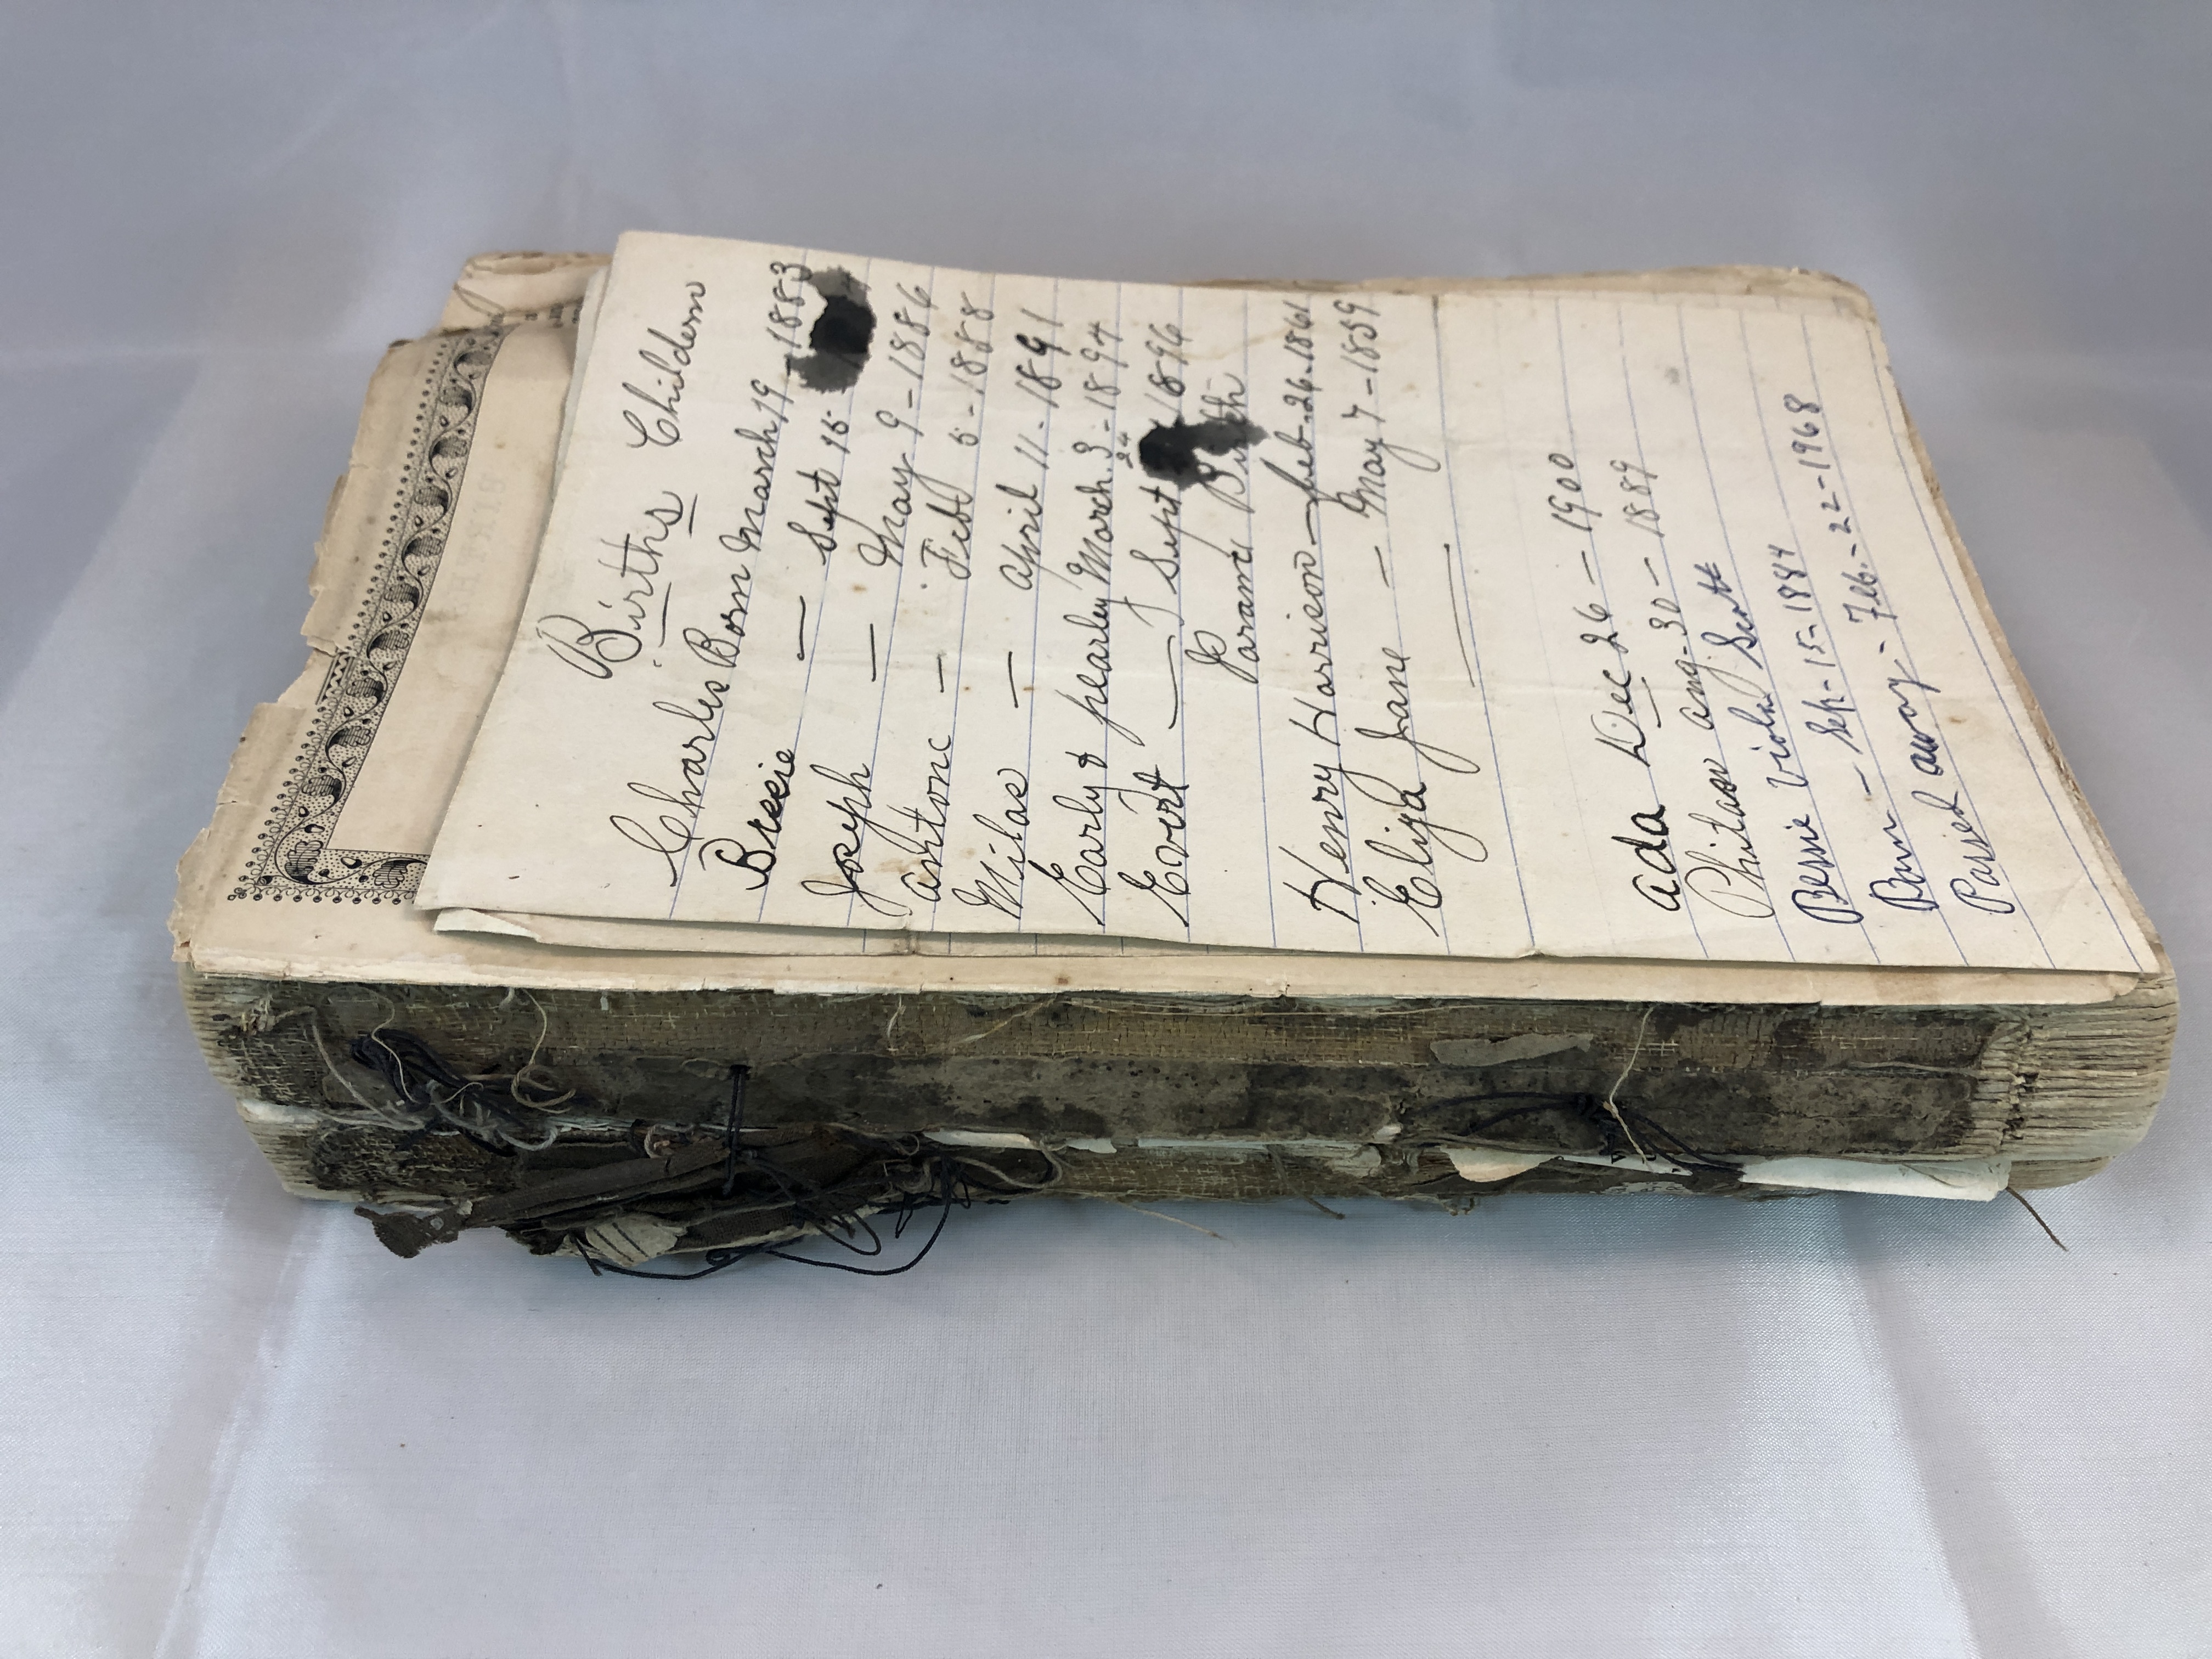 Births Childern
Charles Born March 19 - 1883
Bessie — Sept 15 -
Joseph — May 9 - 1886
Artonc — Feb 5 - 1888
Milas — April 11 - 1891
Early & pearley March 3 - 1894
24
Evert — Sept 1896
Parand Birth
Henry Harrison — Feb - 26 - 1861
Eliza Jane — May 7 - 1859
Ada Dec 26 — 1900
Philaw Aug - 30 - 1889
Bessie Viola Scott
Born — Sep - 15 - 1884
Passed away - Feb. - 22 - 1968
BIRTHS